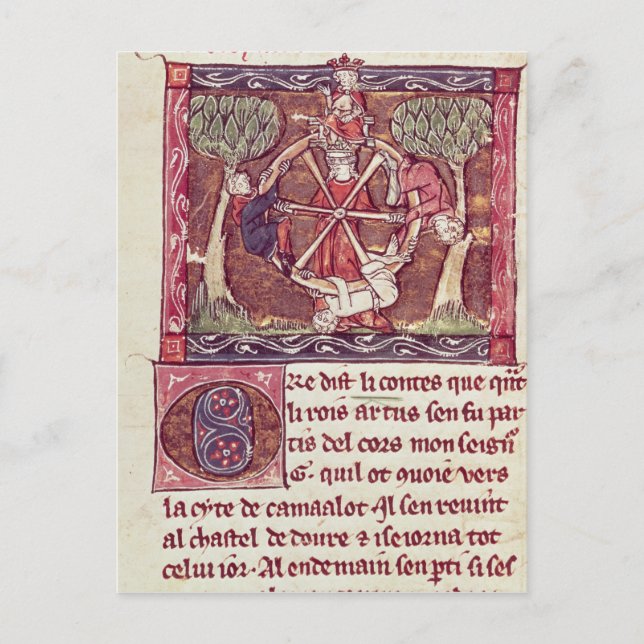 Ore dist li contes que qnt
li rois artus sen fu par
tis del cors mon seign
G. quil ot 9uoie vers
la cyte de camaalot Al sen reuint
al chastel de doure & iseiorna tot
celui ior. Al endemain sen pti si ses